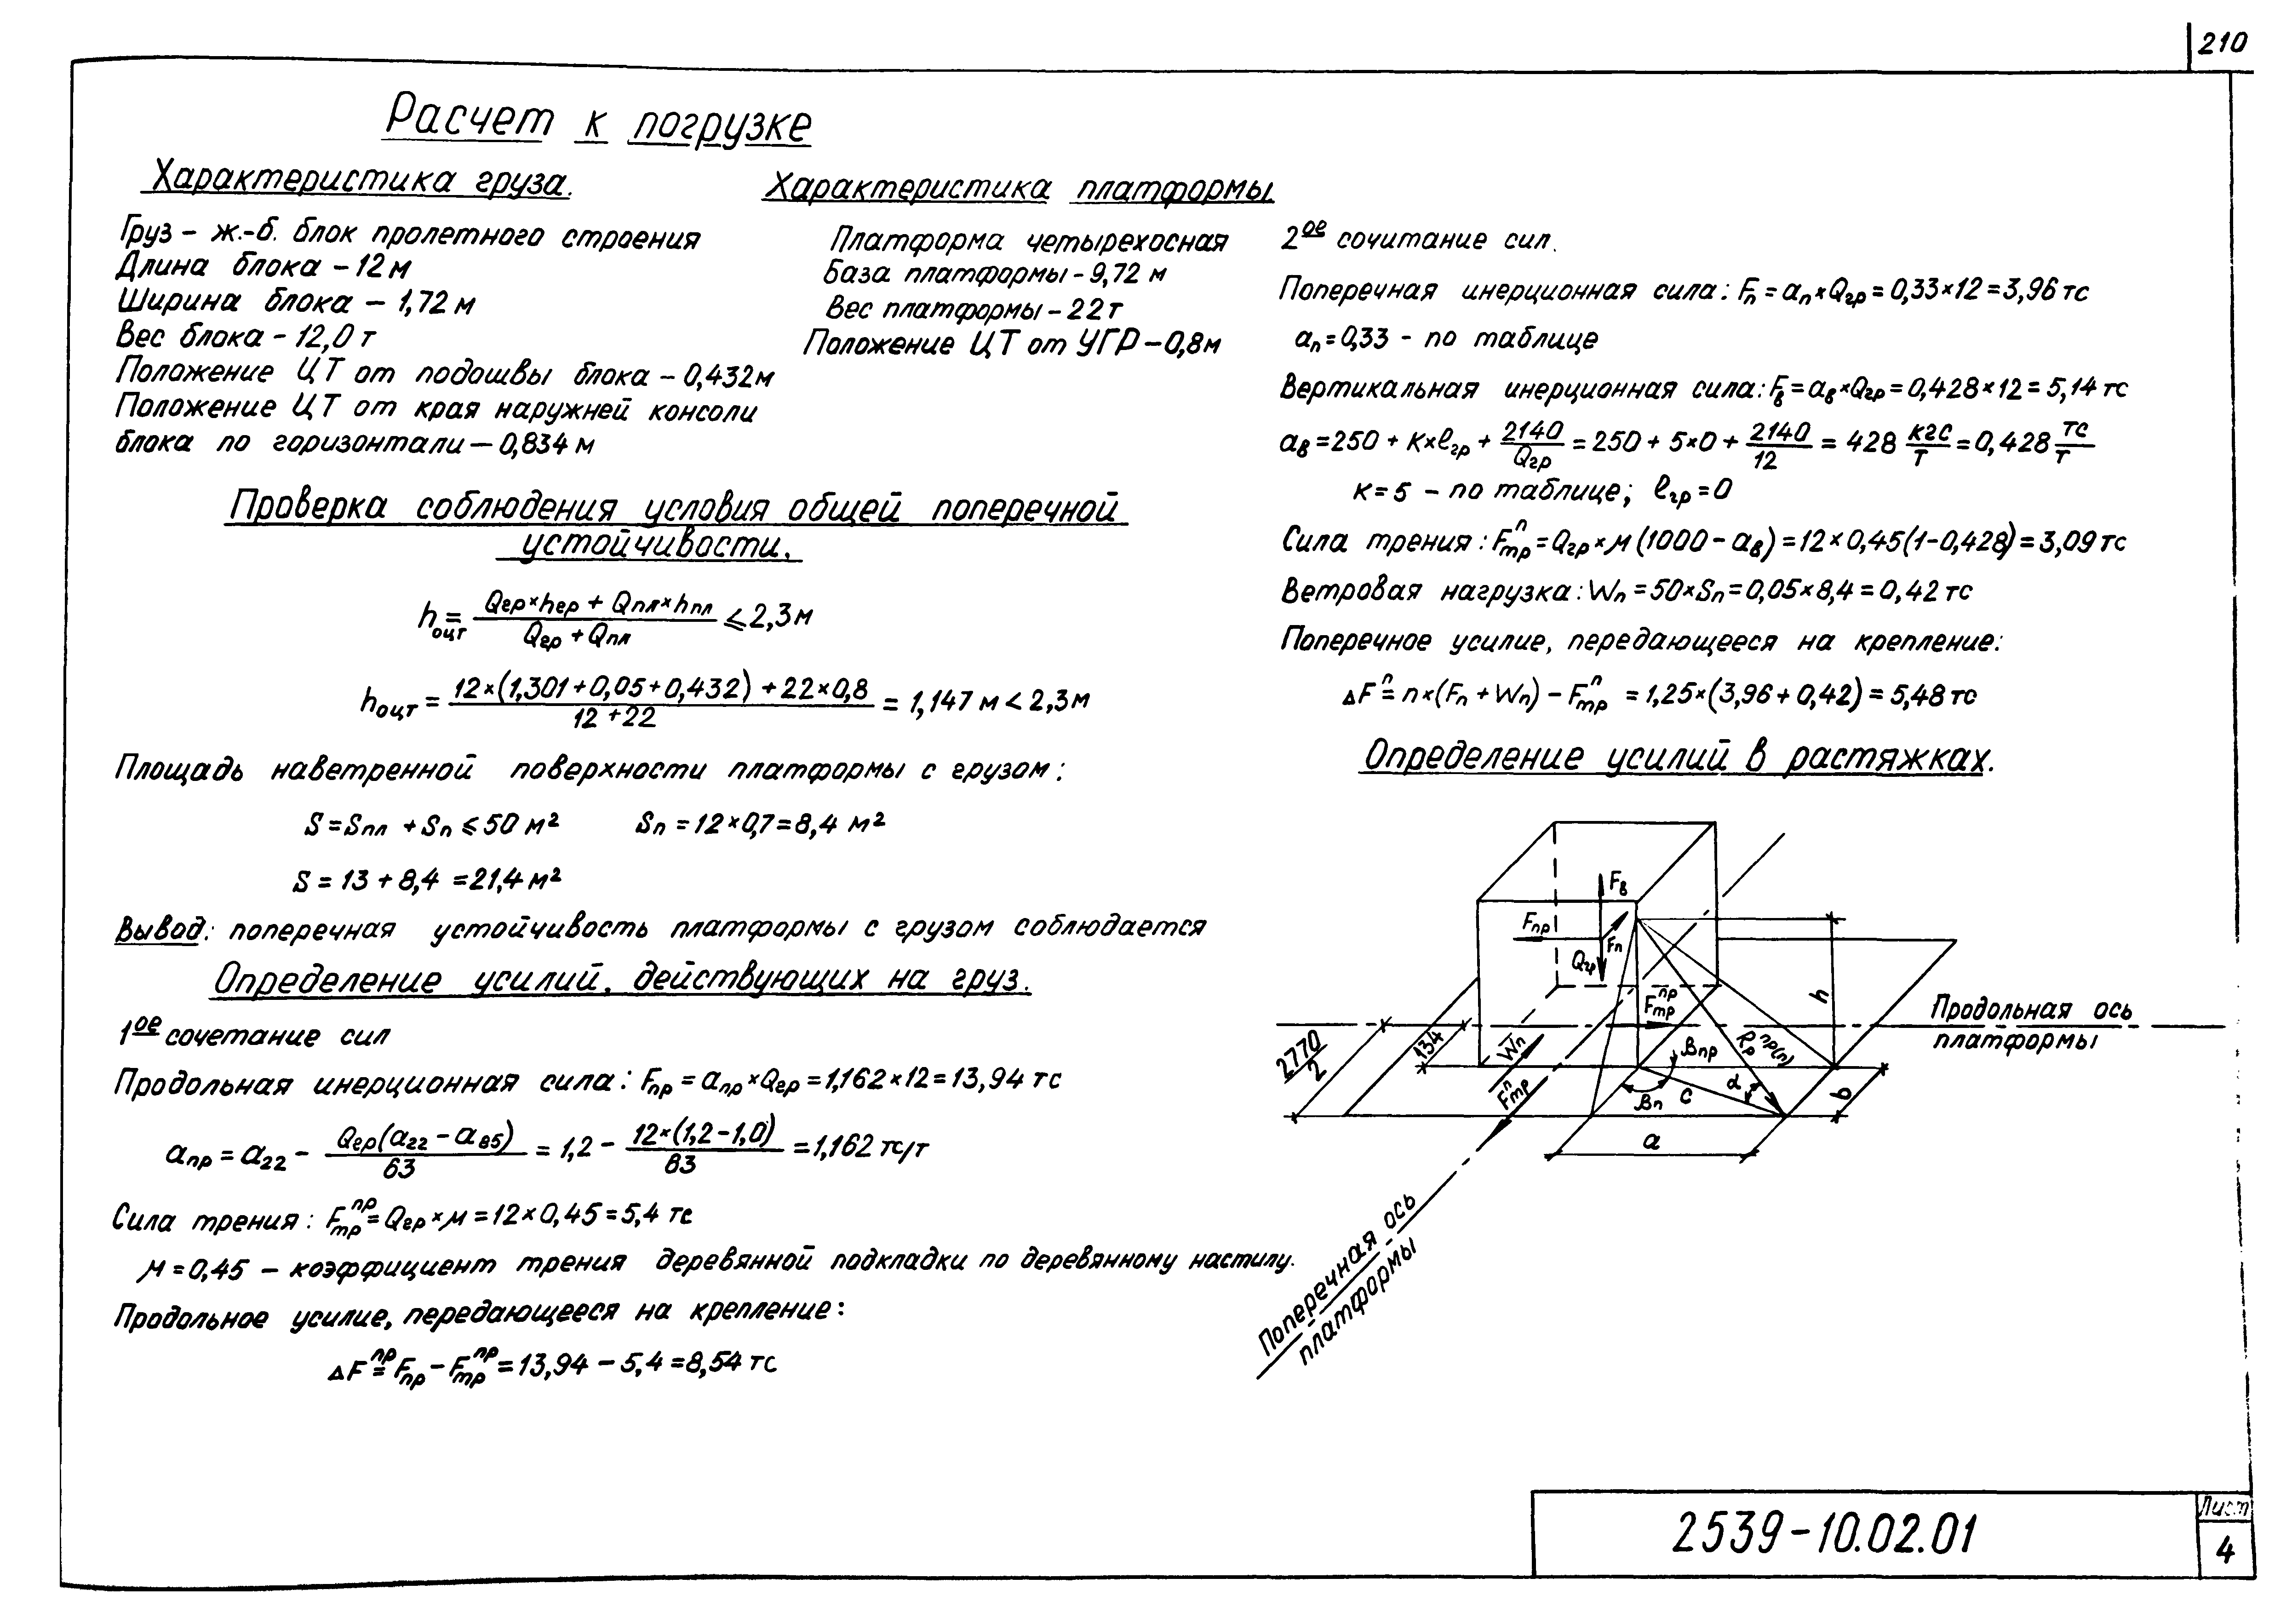 210
Расчет к погрузке
Характеристика груза.
Груз - ж.-б. блок пролетного строения
Длина блока - 12 м
Ширина блока - 1,72 м
Вес блока - 12,0 т
Положение ЦТ от подошвы блока - 0,432м
Положение ЦТ от края наружней консоли
блока по горизонтали - 0,834 м
Характеристика платформы
Платформа четырехосная
База платформы - 9,72 м
Вес платформы - 22 т
Положение ЦТ от УГР - 0,8м
Проверка соблюдения условия общей поперечной
устойчивости.
hоцт = (Qгр×hгр + Qпл×hпл) / (Qгр + Qпл) ≤ 2,3м
hоцт = (12×(1,301+0,05+0,432) + 22×0,8) / (12+22) = 1,147 м < 2,3м
Площадь наветренной поверхности платформы с грузом:
S = Sпл + Sп ≤ 50 м² Sп = 12×0,7 = 8,4 м²
S = 13 + 8,4 = 21,4 м²
Вывод: поперечная устойчивость платформы с грузом соблюдается
Определение усилий, действующих на груз.
1ое сочетание сил
Продольная инерционная сила: Fпр = aпр×Qгр = 1,162×12 = 13,94 тс
aпр = a22 - Qгр(a22 - a85) / 63 = 1,2 - 12×(1,2-1,0) / 83 = 1,162 тс/т
Сила трения: Fтр^пр = Qгр×м = 12×0,45 = 5,4 тс
м = 0,45 - коэффициент трения деревянной подкладки по деревянному настилу.
Продольное усилие, передающееся на крепление:
ΔF^пр = Fпр - Fтр^пр = 13,94 - 5,4 = 8,54 тс
2ое сочитание сил.
Поперечная инерционная сила: Fп = aп×Qгр = 0,33×12 = 3,96 тс
aп = 0,33 - по таблице
Вертикальная инерционная сила: Fв = aв×Qгр = 0,428×12 = 5,14 тс
aв = 250 + к×ℓгр + 2140/Qгр = 250 + 5×0 + 2140/12 = 428 кгс/т = 0,428 тс/т
к = 5 - по таблице; ℓгр = 0
Сила трения: Fтр^п = Qгр×м(1000 - aв) = 12×0,45(1-0,428) = 3,09 тс
Ветровая нагрузка: Wп = 50×Sп = 0,05×8,4 = 0,42 тс
Поперечное усилие, передающееся на крепление:
ΔF^п = n×(Fп + Wп) - Fтр^п = 1,25×(3,96 + 0,42) = 5,48 тс
Определение усилий в растяжках.
Fв
Fпр
Fп
Qгр
Fтр^пр
h
Продольная ось
платформы
2770/2
134
Wп
Fтр^п
Rр^пр(п)
βпр
βп
c
α
b
a
Поперечная ось
платформы
2539-10.02.01
Лист
4